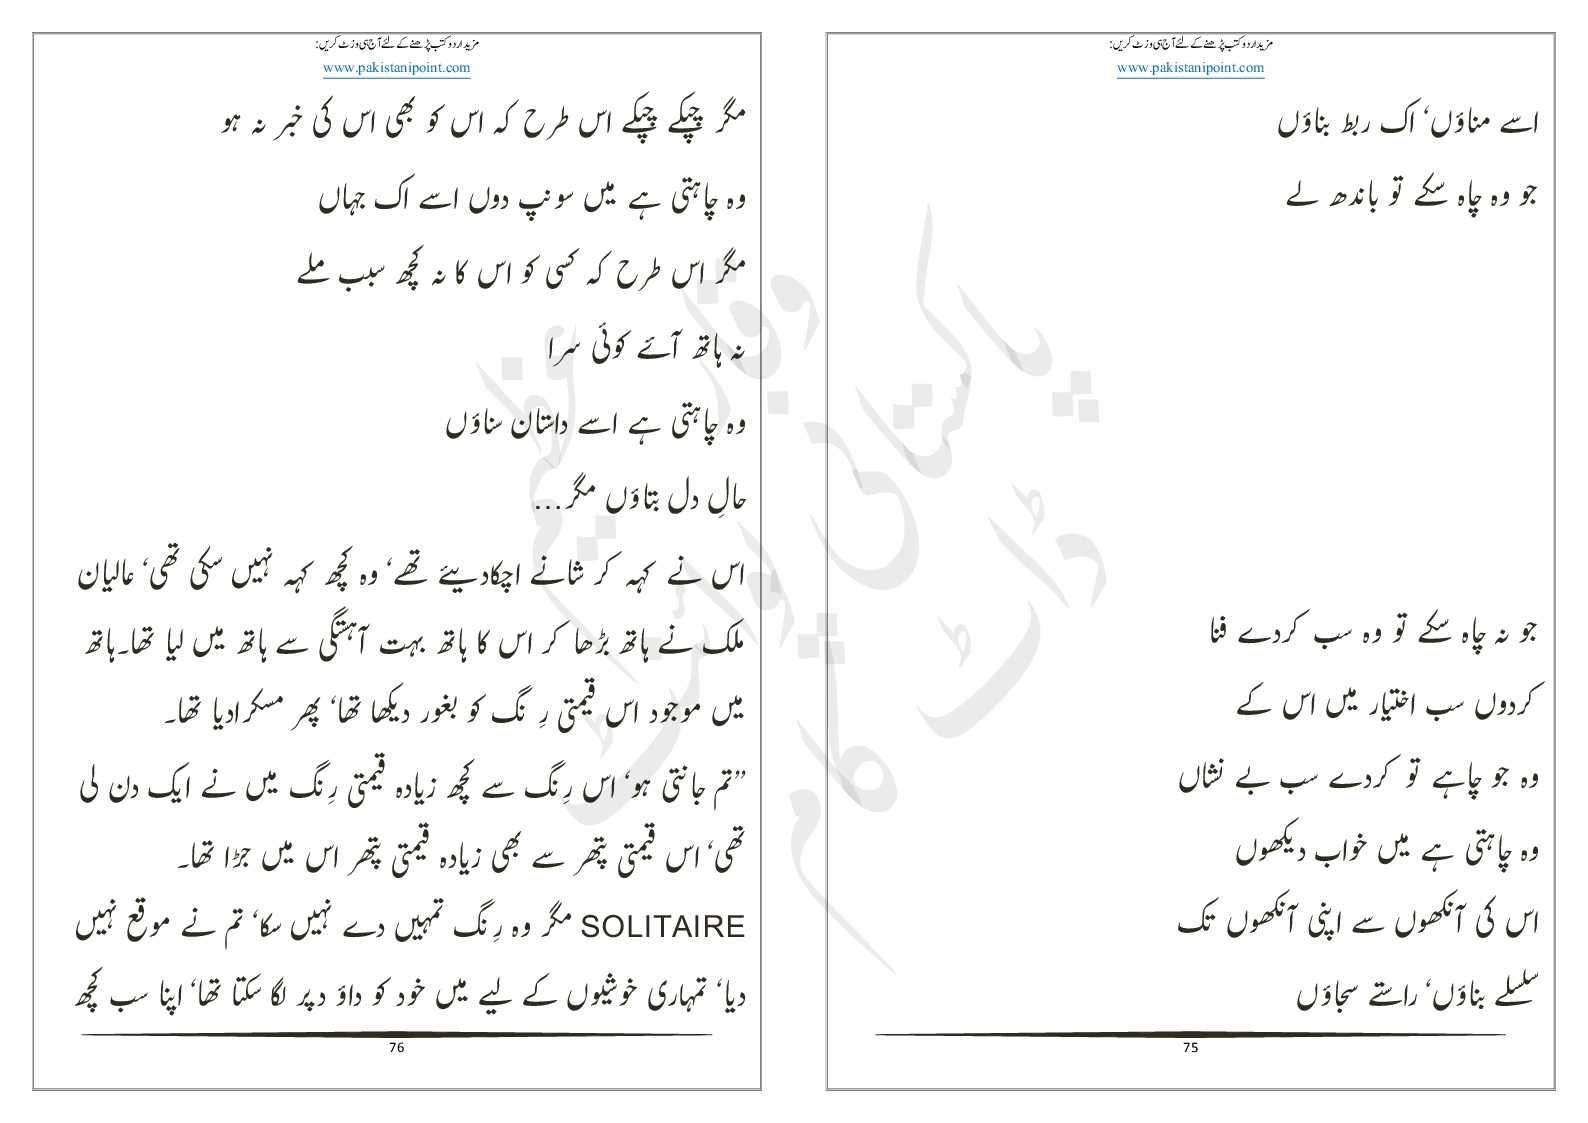 مزید اردو کتب پڑھنے کے لئے آج ہی وزٹ کریں:
www.pakistanipoint.com
اسے مناؤں‘ اک ربط بناؤں
جو وہ چاہ سکے تو باندھ لے
جو نہ چاہ سکے تو وہ سب کردے فنا
کردوں سب اختیار میں اس کے
وہ جو چاہے تو کردے سب بے نشاں
وہ چاہتی ہے میں خواب دیکھوں
اس کی آنکھوں سے اپنی آنکھوں تک
سلسلے بناؤں‘ راستے سجاؤں
75
مزید اردو کتب پڑھنے کے لئے آج ہی وزٹ کریں:
www.pakistanipoint.com
مگر چپکے چپکے اس طرح کہ اس کو بھی اس کی خبر نہ ہو
وہ چاہتی ہے میں سونپ دوں اسے اک جہاں
مگر اس طرح کہ کسی کو اس کا نہ کچھ سبب ملے
نہ ہاتھ آئے کوئی سرا
وہ چاہتی ہے اسے داستان سناؤں
حالِ دل بتاؤں مگر...
اس نے کہہ کر شانے اچکادیئے تھے‘ وہ کچھ کہہ نہیں سکی تھی‘ عالیان
ملک نے ہاتھ بڑھا کر اس کا ہاتھ بہت آہستگی سے ہاتھ میں لیا تھا۔ہاتھ
میں موجود اس قیمتی رِنگ کو بغور دیکھا تھا‘ پھر مسکرادیا تھا۔
”تم جانتی ہو‘ اس رِنگ سے کچھ زیادہ قیمتی رِنگ میں نے ایک دن لی
تھی‘ اس قیمتی پتھر سے بھی زیادہ قیمتی پتھر اس میں جڑا تھا۔
SOLITAIRE مگر وہ رِنگ تمہیں دے نہیں سکا‘ تم نے موقع نہیں
دیا‘ تمہاری خوشیوں کے لیے میں خود کو داؤ دپر لگا سکتا تھا‘ اپنا سب کچھ
76
وقار عظیم
پاکستانی پوائنٹ
ڈاٹ کام